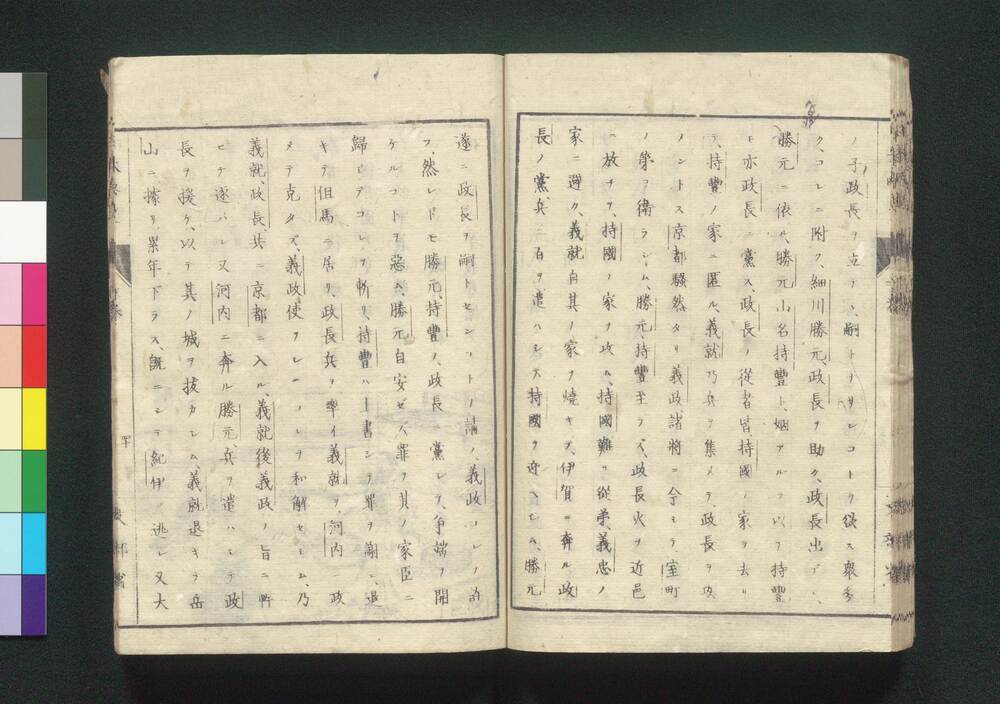 ノ子政長ヲ立テヽ嗣トナサンコトヲ欲ス衆多
ク、コレニ附ク、細川勝元、政長ヲ助ク、政長出デヽ、
勝元ニ依ル、勝元山名持豐ト、姻アルヲ以テ持豐
モ亦政長ニ黨ス、政長ノ從者皆持國ノ家ヲ去リ
テ、持豐ノ家ニ匿ル、義就乃兵ヲ集メテ、政長ヲ攻
メントス京都騒然タリ義政諸將ニ令シテ室町
ノ第ヲ衛ラシム、勝元、持豐至ラズ、政長火ヲ近邑
ニ放チ、持國ノ家ヲ攻ム、持國難ヲ從弟、義忠ノ
家ニ避ク、義就自其ノ家ヲ燒キテ、伊賀ニ奔ル政
長ノ黨、兵二百ヲ遣ハシテ持國ヲ迎ヘシム、勝元
遂ニ政長ヲ嗣トセンコトヲ請フ、義政コレヲ許
フ、然レドモ勝元、持豐ノ、政長 黨シテ、爭端ヲ開
ケルコトヲ惡ム、勝元自安ゼズ罪ヲ其ノ家臣ニ
歸シテコレヲ斬リ、持豐ハ上書シテ罪ヲ謝シ、退
キテ但馬ニ居リ、政長兵ヲ率イ義就ヲ、河内 攻
メテ克タズ、義政使ヲシテコレヲ和解セシム、乃
義就、政長、共ニ京都ニ入ル、義就後義政ノ旨ニ忤
ヒテ逐ハレ又河内ニ奔ル勝元、兵ヲ遣ハシテ政
長ヲ援ケ、以テ其ノ城ヲ拔カシム、義就退キテ岳
山ニ據リ、累年下ラス、既ニシテ紀伊ニ逃レ又大